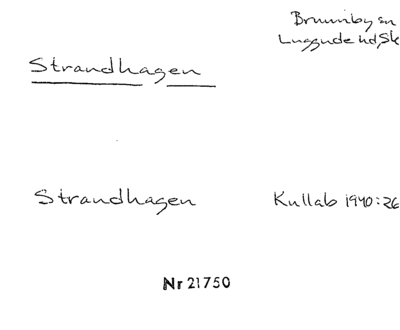 Brunnby sn
Luggude hd, Sk
Strandhagen
Strandhagen Kullab 1940:26
Nr 21750